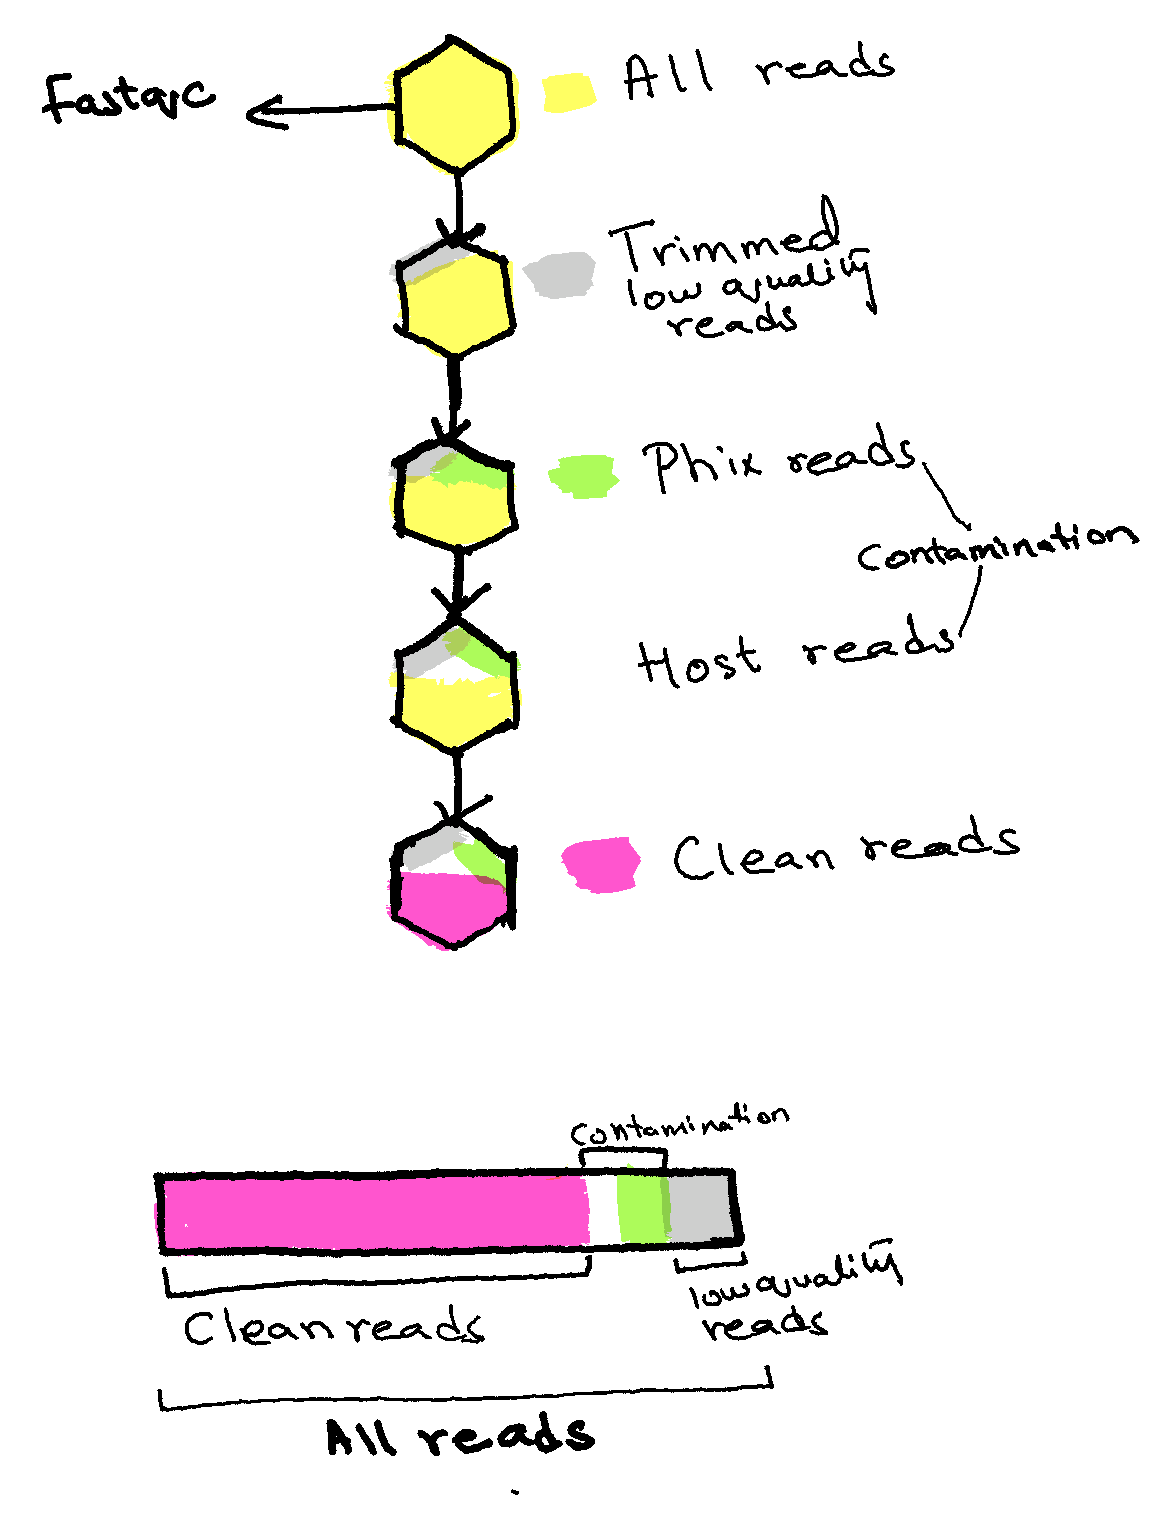 Fastqc
All reads
Trimmed
low quality
reads
Phix reads
Contamination
Host reads
Clean reads
Contamination
Clean reads
low quality
reads
All reads